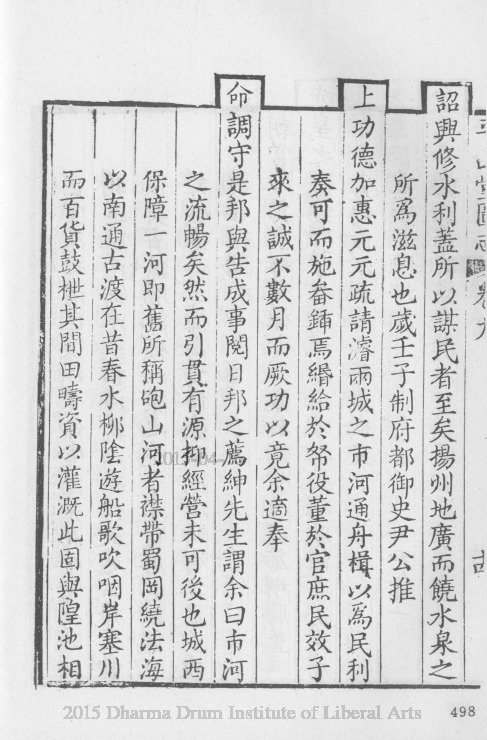 平山堂圖志 卷九
詔興修水利蓋所以謀民者至矣揚州地廣而饒水泉之
所爲滋息也歲壬子制府都御史尹公推
上功德加惠元元疏請濬兩城之市河通舟楫以爲民利
奏可而施畚鍤焉緡給於帑役董於官庶民效子
來之誠不數月而厥功以竟余適奉
命調守是邦與告成事閱日邦之薦紳先生謂余曰市河
之流暢矣然而引貫有源抑經營未可後也城西
保障一河即舊所稱砲山河者襟帶蜀岡繞法海
以南通古渡在昔春水柳陰遊船歌吹咽岸塞川
而百貨鼓枻其間田疇資以灌溉此固與隍池相
2015 Dharma Drum Institute of Liberal Arts
498